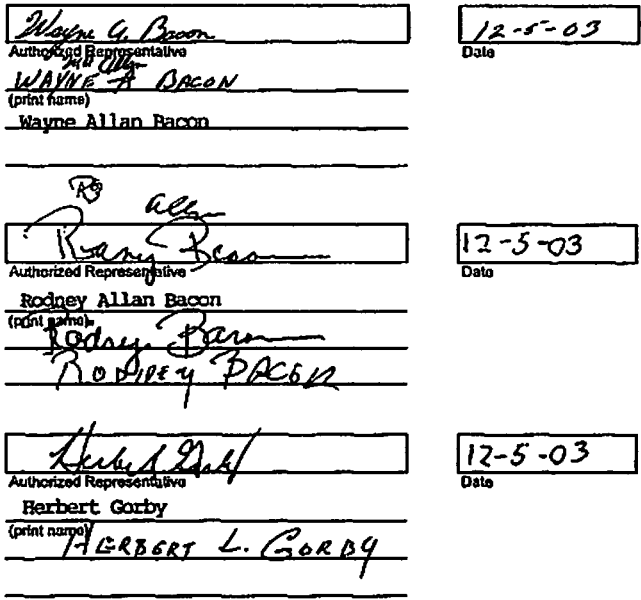 Wayne A. Bacon 12-5-03
Authorized Representative Date
Allan
WAYNE A BACON
(print name)
Wayne Allan Bacon
Allan
Bacon 12-5-03
Authorized Representative Date
Rodney Allan Bacon
(print name)
Rodney Bacon
RODNEY BACON
Herbert Gorby 12-5-03
Authorized Representative Date
Herbert Gorby
(print name)
HERBERT L. GORBY